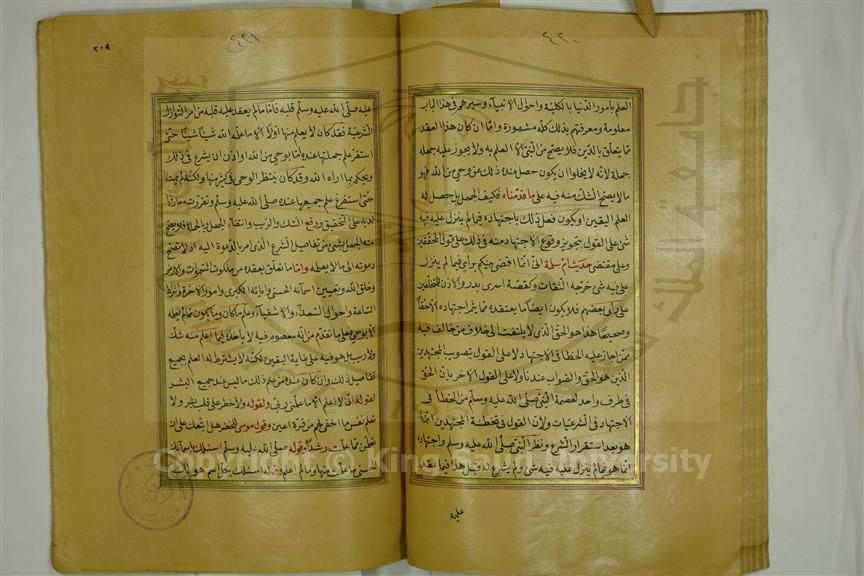 ٤٢٠
العلم بامور الدنيا بالكلية واحوال الانبياء وسيرهم في هذا الباب
معلومة ومعرفتهم بذلك كله مشهورة واما ان كان هذا العقد
مما يتعلق بالدين فلا يصح من النبي الا العلم به ولا يجوز عليه جهله
جملة لانه لا يخلوا ان يكون حصل عنده ذلك عن وحي من الله فهو
ما لا يصح الشك منه فيه على ما قدمناه فكيف الجهل بل حصل له
العلم اليقين او يكون فعل ذلك باجتهاده فيما لم ينزل عليه فيه
شئ على القول بتجويز وقوع الاجتهاد منه في ذلك على قول المحققين
وعلى مقتضى حديث ام سلمة اني انما اقضي بينكم برأيي فيما لم ينزل
علي فيه شئ خرجه الثقات وكقصة اسرى بدر والاذن للمتخلفين
على رأى بعضهم فلا يكون ايضا ما يعتقده مما يثمر اجتهاده الاحقا
وصحيحا هذا هو الحق الذى لا يلتفت الى خلاف من خالف فيه
ممن اجاز عليه الخطا في الاجتهاد لا على القول بتصويب المجتهدين
الذى هو الحق والصواب عندنا ولا على القول الاخر بان الحق
في طرف واحد لعصمة النبي صلى الله عليه وسلم من الخطأ في
الاجتهاد في الشرعيات ولان القول في تخطئة المجتهدين انما
هو بعد استقرار الشرع ونظر النبي صلى الله عليه وسلم واجتهاده
انما هو فيما لم ينزل عليه فيه شئ ولم يشرع له قبل هذا فيما عقد
عليه
٤٢١
٢٠٩
عليه صلى الله عليه وسلم قلبه فاما ما لم يعقد عليه قلبه من امر النوازل
الشرعية فقد كان لا يعلم منها اولا الا ما علمه الله شيئا شيئا حتى
استقر علم جملتها عنده اما بوحى من الله او اذن ان يشرع في ذلك
ويحكم بما اراه الله وقد كان ينتظر الوحى في كثير منها ولكنه لم يمت
حتى استفرغ علم جميعها عنده صلى الله عليه وسلم وتقررت معارفها
لديه على التحقيق ورفع الشك والريب وانتفاء الجهل وبالجملة فلا يصح
منه الجهل بشئ من تفاصيل الشرع الذى امر بالدعوة اليه اذ لا تصح
دعوته الى ما لا يعلمه واما ما تعلق بعقده من ملكوت السموات والارض
وخلق الله وتعيين اسمائه الحسنى واياته الكبرى وامور الاخرة واشراط
الساعة واحوال السعداء والاشقياء وعلم ما كان وما يكون مما لم يعلمه
الا بوحى فعلى ما تقدم من انه معصوم فيه لا ياخذه فيما اعلم منه شك
ولا ريب بل هو فيه على غاية اليقين لكنه لا يشترط له العلم بجميع
تفاصيل ذلك وان كان عنده من علم ذلك ما ليس عند جميع البشر
لقوله اني لا اعلم الا ما علمني ربي ولقوله ولا خطر على قلب بشر ولا
تعلم نفس ما اخفى لهم من قرة اعين وقول موسى للخضر هل اتبعك على ان
تعلمن مما علمت رشدا وقوله صلى الله عليه وسلم اسئلك باسمائك
الحسنى ما علمت منها وما لم اعلم وقوله اسئلك بكل اسم هو لك
جامعة الملك سعود
Copyright © King Saud University